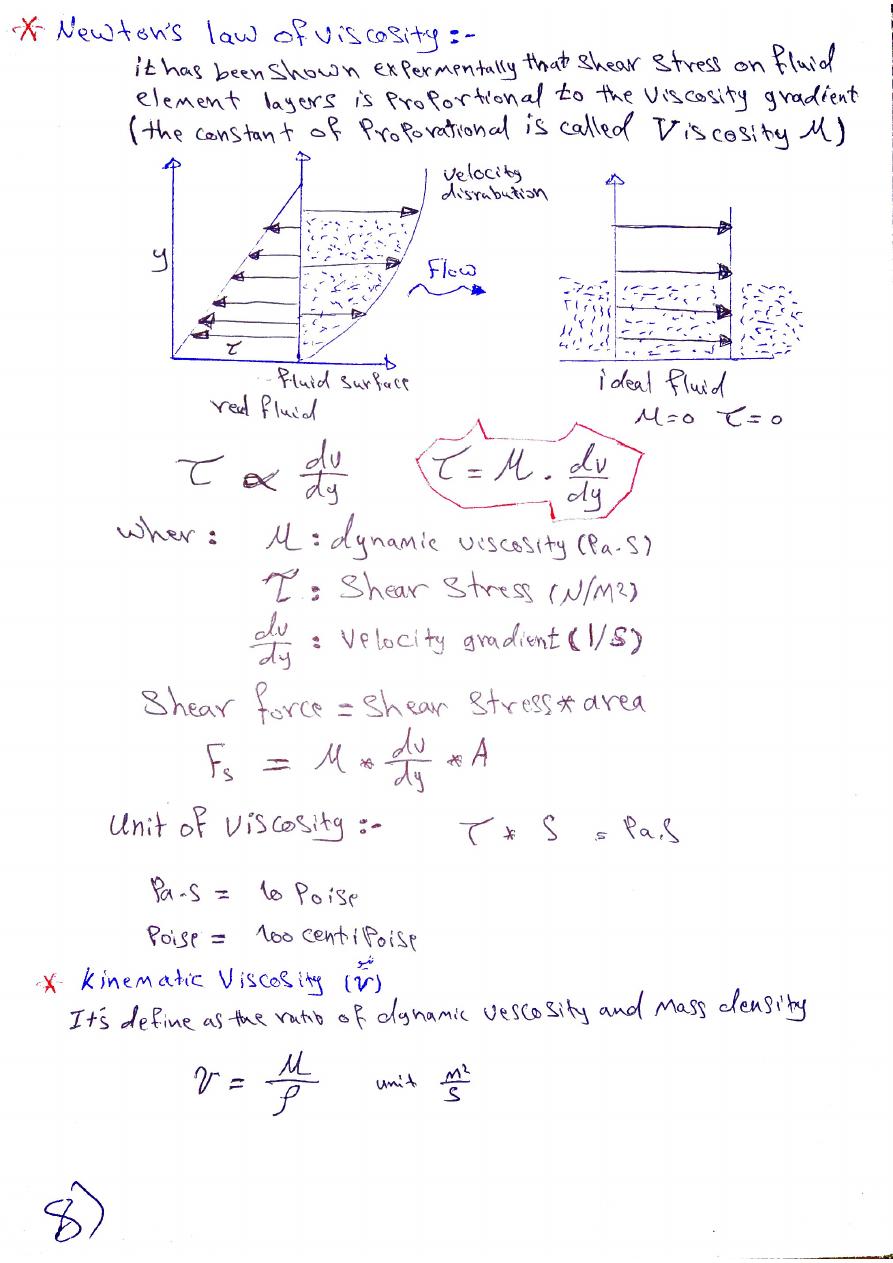 * Newton's law of viscosity :-
it has been shown expermentally that shear stress on fluid
element layers is proportional to the viscosity gradient
(the constant of proporational is called Viscosity M)
velocity
disrabution
y
Flow
τ
fluid surface
real fluid
ideal fluid
M=0 τ=0
τ ∝ dv/dy
τ = M . dv/dy
wher : M : dynamic viscosity (Pa-S)
τ : Shear Stress (N/M²)
dv/dy : Velocity gradient (1/S)
Shear force = Shear Stress * area
Fs = M * dv/dy * A
Unit of Viscosity :- τ * S = Pa.S
Pa-S = 10 Poise
Poise = 100 centipoise
* Kinematic Viscosity (ν)
It's define as the ratio of dynamic vescosity and mass density
ν = M/ρ unit m²/s
8)